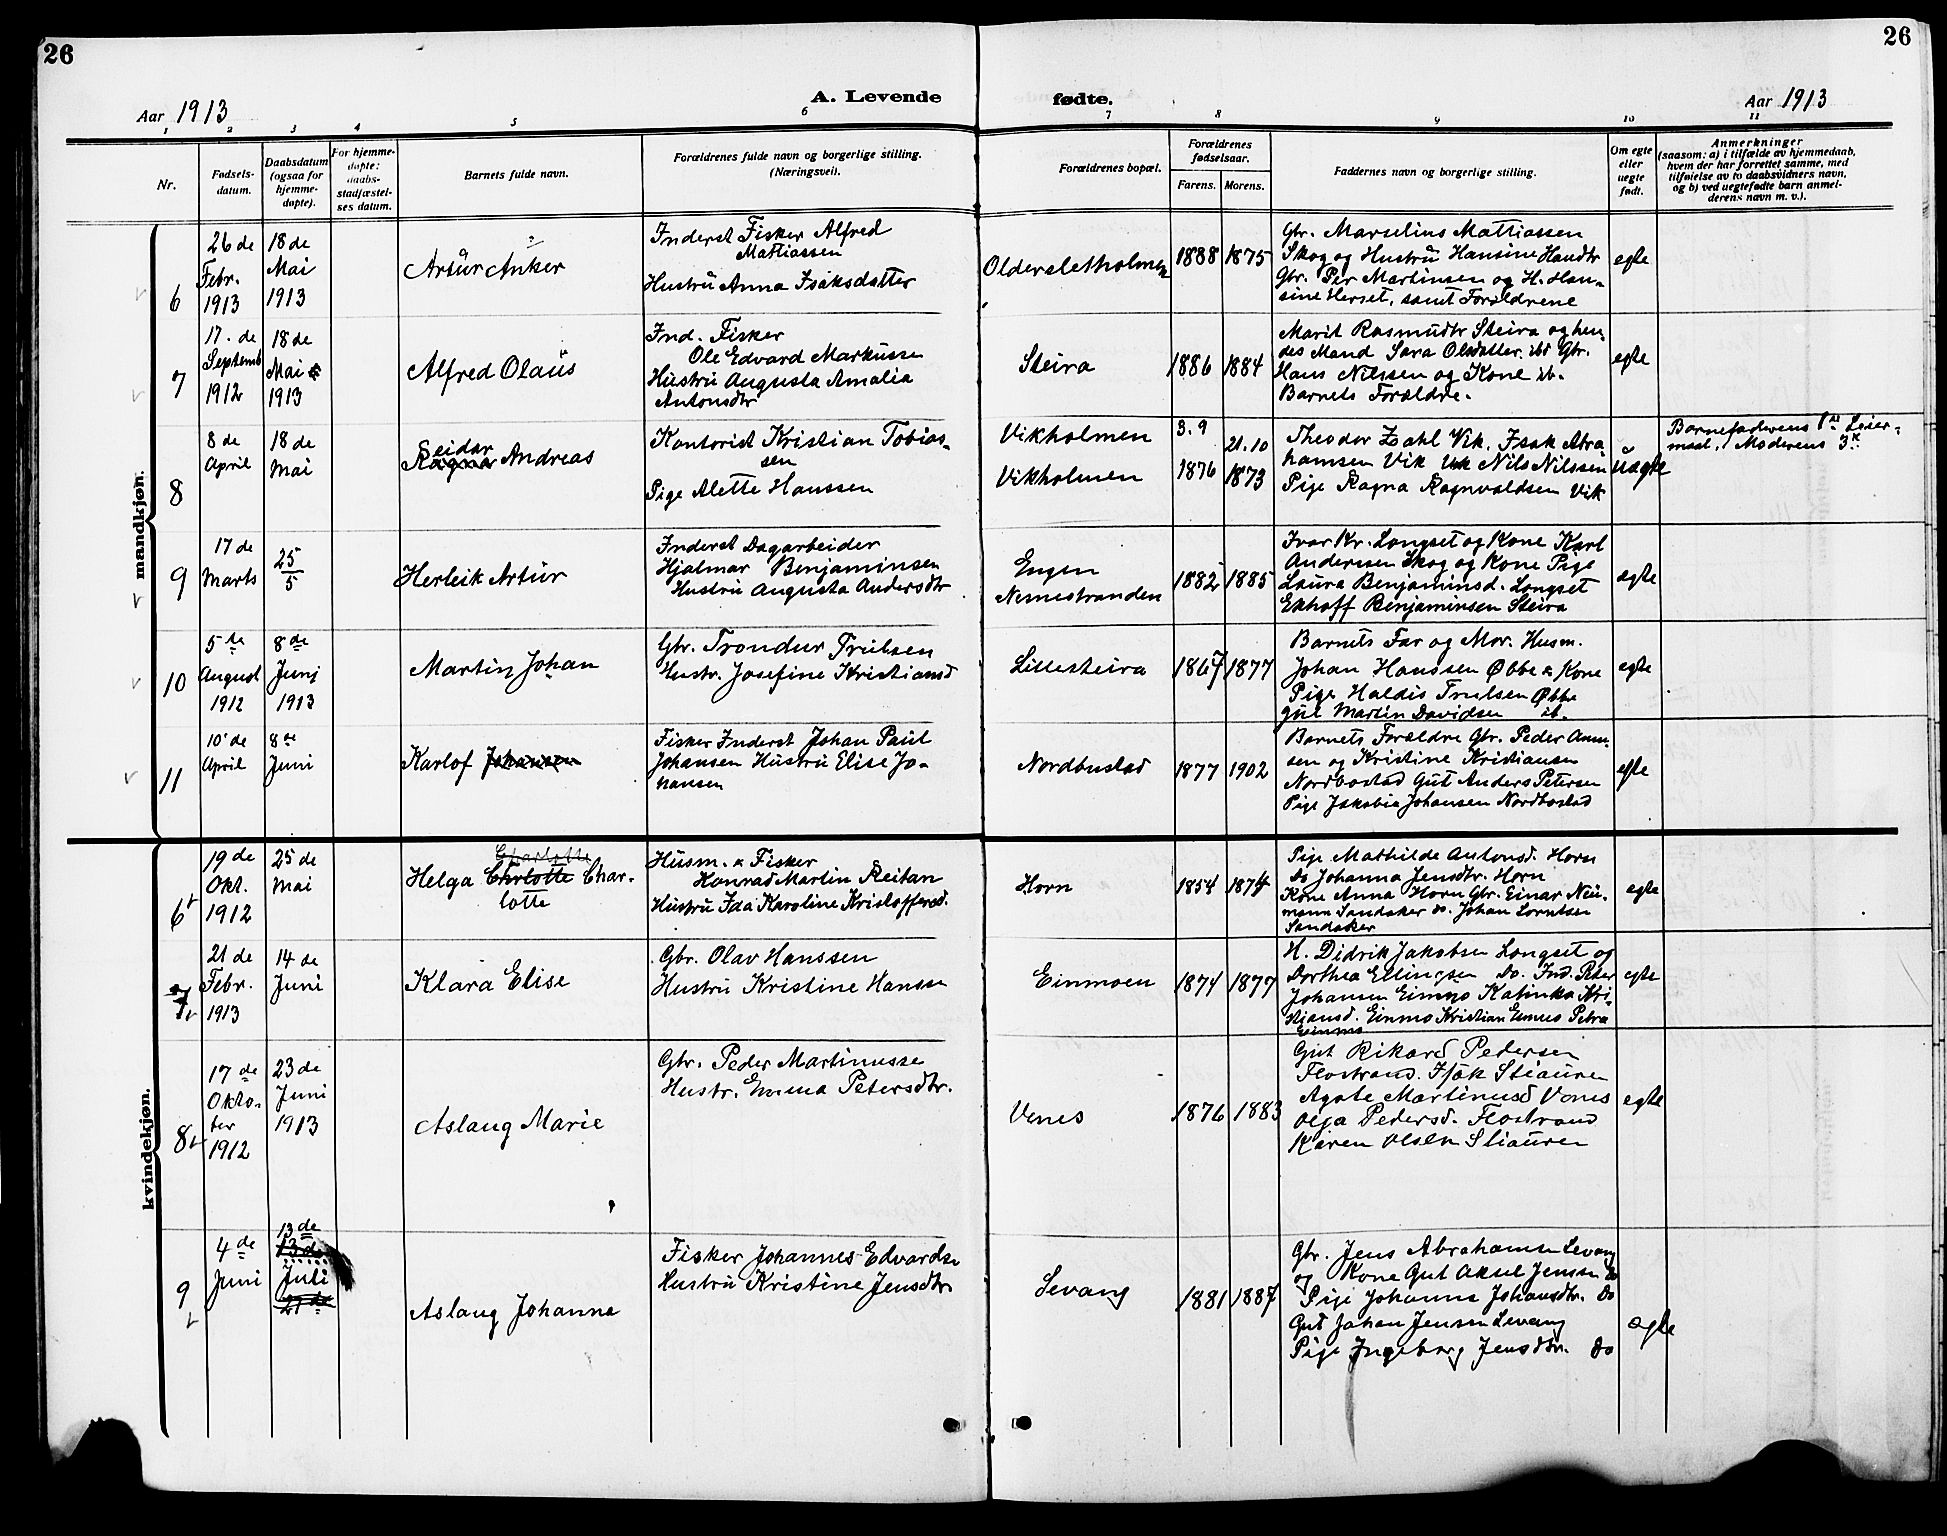 26
26
A. Levende fødte.
Aar 1913
Aar 1913
1 2 3 4 5 6 7 8 9 10 11
Nr.
Fødsels-
datum.
Daabsdatum
(ogsaa for
hjemme-
døpte).
For hjemme-
døpte:
daabs-
stadfæstel-
ses datum.
Barnets fulde navn.
Forældrenes fulde navn og borgerlige stilling.
(Næringsvei).
Forældrenes bopæl.
Forældrenes
fødselsaar.
Farens. Morens.
Faddernes navn og borgerlige stilling.
Om egte
eller
uegte
født.
Anmerkninger
(saasom: a) i tilfælde av hjemmedaab,
hvem der har forrettet samme, med
tilføielse av to daabsvidners navn,
og b) ved uegtefødte barn anmel-
derens navn m. v.).
mandkjøn.
6
26 de
Febr.
1913
18 de
Mai
1913
Artur Anker
Inderst Fisker Alfred
Mattiassen
Hustru Anna Isaksdatter
Oldersletholmen
1888
1875
Gbr. Marselius Mattiassen
Skog og Hustru Hansine Handtr
Gbr. Per Martinsen og H. Han-
sine Herset, samt Forældrene
egte
7
17. de
Septemb
1912
18 de
Mai
1913
Alfred Olaus
Ind. Fisker
Ole Edvard Markusse
Hustru Augusta Amalia
Antonsdtr
Steira
1886
1884
Marit Rasmusdtr Steira og hen-
des Mand Sara Olsdatter ibd Gbr.
Hans Nilssen og Kone ib.
Barnets Forældre.
egte
8
8 de
April
18 de
Mai
Reidar
Ragnar Andreas
Kontorist Kristian Tobias-
sen
Pige Alette Hanssen
Vikholmen
Vikholmen
3.9
1876
21.10
1873
Theodor Zahl Vik, Isak Abra
hamsen Vik Nils Nilssen
Pige Ragna Ragnvaldsen Vik
uegte
Barnefaderens 1ste Leier-
maal, Moderens 3die
9
17 de
Marts
25
5
Herleik Artur
Inderst Dagarbeider
Hjalmar Benjaminsen
Hustru Augusta Andersdtr
Engen
Nemestranden
1882
1885
Ivar Kr. Longset og Kone Karl
Anderssen Skog og Kone Pige
Laura Benjaminsd. Longset
Ekhoff Benjaminsen Steira
egte
10
5 te
August
1912
8 de
Juni
1913
Martin Johan
Gbr. Trondur Trulsen
Hustr. Josefine Kristiansd
Lillesteira
1867
1877
Barnets Far og Mor. Husm.
Johan Hanssen Øbbe & Kone
Pige Haldis Trulsen Øbbe
Gut Martin Davidsen ib.
egte
11
10 de
April
8 de
Juni
Karlof Johansen
Fisker Inderst Johan Paul
Johansen Hustru Elise Jo-
hansen
Nordbustad
1877
1902
Barnets Forældre Gbr. Peder
sen og Kristine Kristiansen
Nordbostad Gut Anders Petersen
Pige Jakobia Johansen Nordbostad
egte
kvindekjøn.
6
19 de
Okt.
1912
25 de
Mai
Charlotte
Helga Chrlotte Char-
lotte
Husm. & Fisker
Konrad Martin Reitan
Hustru Ida Karoline Kristoffersd.
Horn
1854
1874
Pige Mathilde Antonsd. Horn
do Johanna Jensdtr. Horn
Kone Anna Horn Gbr. Einar Neu-
mann Sandaker do. Johan Lorntsen
Sandaker
egte
7
21 de
Febr.
1913
14 de
Juni
Klara Elise
Gbr. Olav Hanssen
Hustru Kristine Hansse
Einmoen
1874
1877
H. Didrik Jakobsen Longset og
Dorthea Ellingsen do. Ind. Peter
Johansen Einmo Katinka Kri-
stiansd. Einmo Kristian Einmo Petra
Einmo
egte
8
17 de
Okto-
ber
1912
23 de
Juni
1913
Aslaug Marie
Gbr. Peder Martinusse
Hustr. Emma Petersdtr.
Venes
1876
1883
Gut Rikard Pedersen
Flostrand. Isak Stiauren
Agote Martinusd Venes
Olga Pedersd. Flostrand
Karen Olsen Stiauren
egte
9
4 de
Juni
13 de
13 de
Juli
27 de
Aslaug Johanne
Fisker Johannes Edvardse
Hustru Kristine Jensdtr
Levang
1881
1887
Gbr. Jens Abrahamse Levang
og Kone Gut Aksel Jenssen do
Pige Johanna Johansdtr. do
Gut Johan Jensen Levang
Pige Ingeborg Jensdtr. do
egte